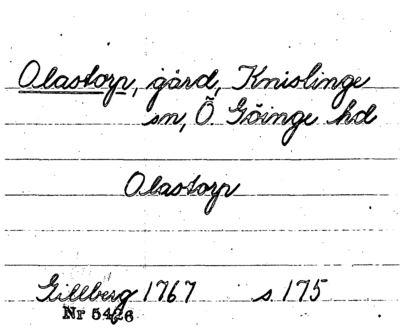 Olastorp, gård, Knislinge
sn, Ö Göinge hd
Olastorp
Gillberg 1767 s 175
Nr 5426